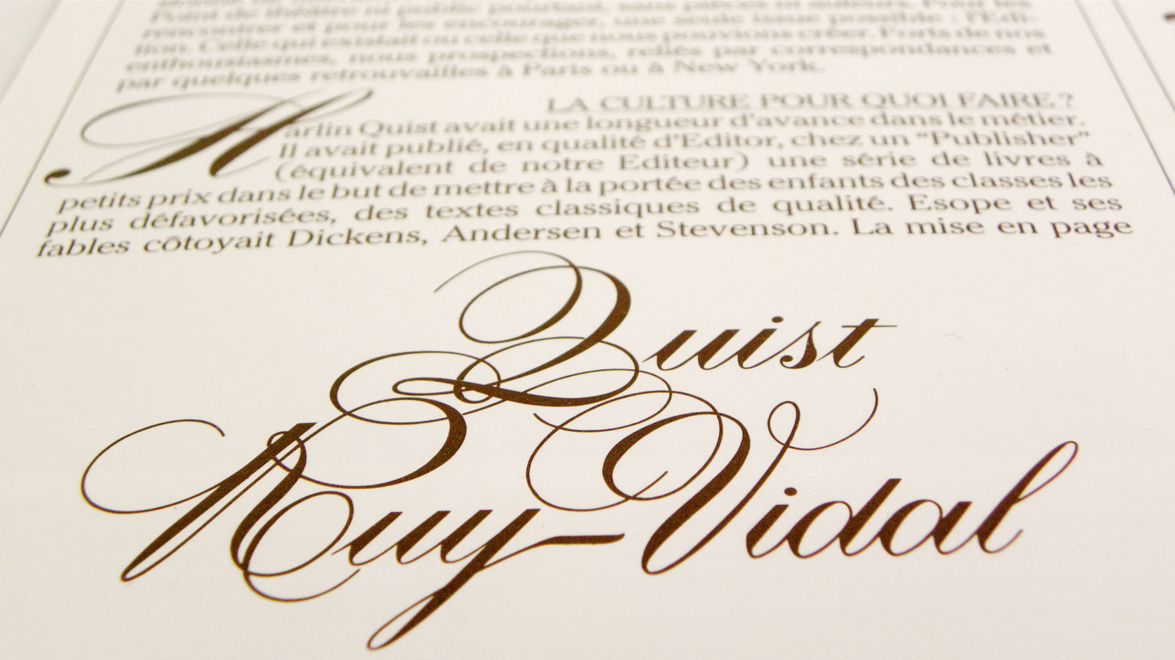 Point de théâtre ni public pourtant, sans pièces ni auteurs. Pour les
rencontrer et pour les encourager, une seule issue possible : l'Edi-
tion. Celle qui existait ou celle que nous pouvions créer. Forts de nos
enthousiasmes, nous prospections, reliés par correspondances et
par quelques retrouvailles à Paris ou à New York.
LA CULTURE POUR QUOI FAIRE ?
Harlin Quist avait une longueur d'avance dans le métier.
Il avait publié, en qualité d'Editor, chez un "Publisher"
(équivalent de notre Editeur) une série de livres à
petits prix dans le but de mettre à la portée des enfants des classes les
plus défavorisées, des textes classiques de qualité. Esope et ses
fables côtoyait Dickens, Andersen et Stevenson. La mise en page
Quist
Ruy-Vidal